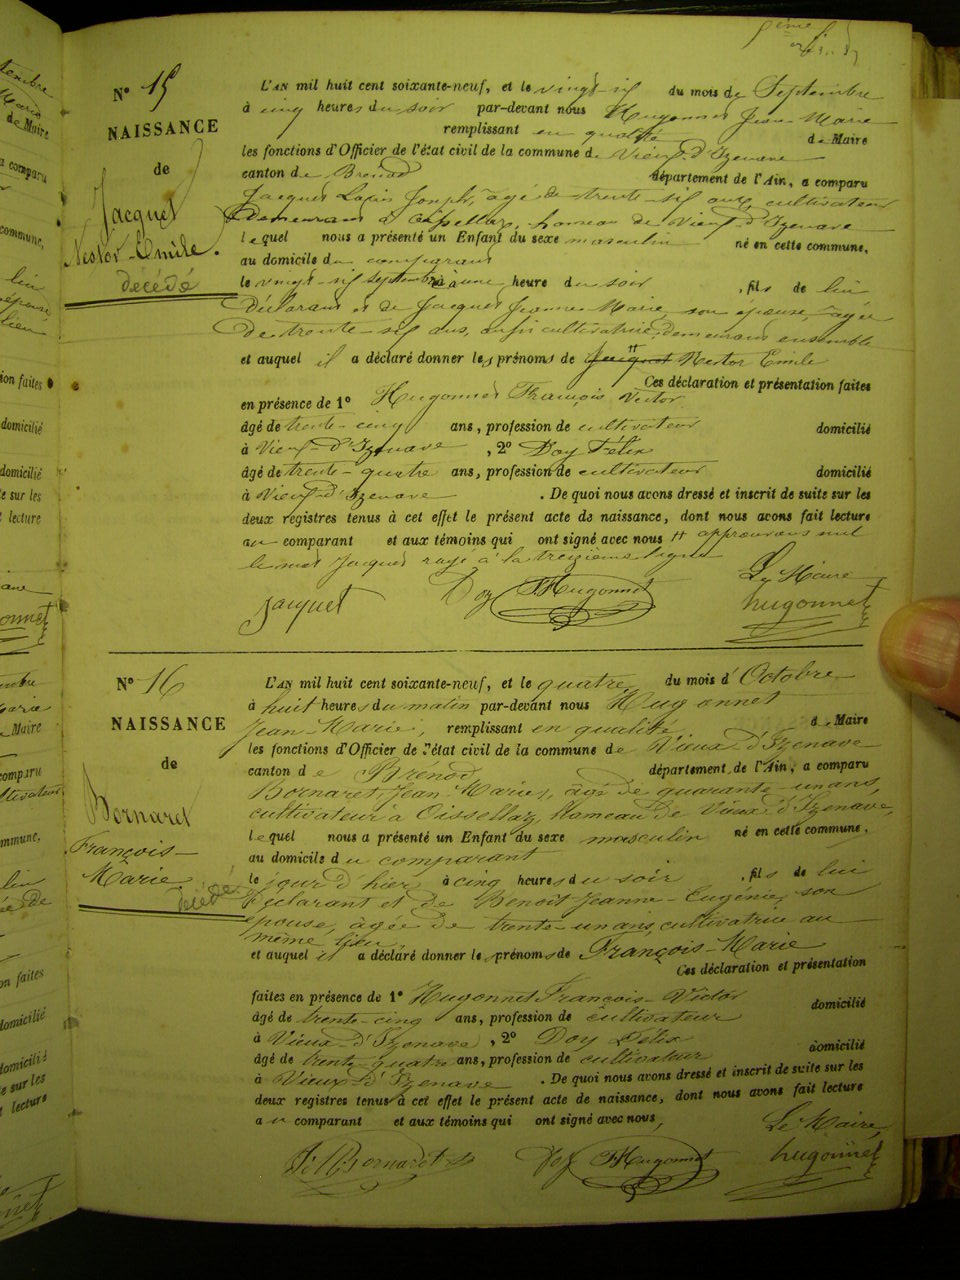 N° 15
NAISSANCE
de
Jacquet
Nestor-Emile.
décédé
L'AN mil huit cent soixante-neuf, et le vingt-six du mois de Septembre
à cinq heures du soir par-devant nous Hugonnet Jean-Marie
remplissant en qualité de Maire
les fonctions d'Officier de l'état civil de la commune de Vieux-d'Izenave
canton de Brénod département de l'Ain, a comparu
Jacquet Joseph, âgé de trente-six ans, cultivateur
demeurant à hameau de Vieux-d'Izenave
lequel nous a présenté un Enfant du sexe masculin né en cette commune,
au domicile du comparant
le vingt-six septembre à une heure du soir, fils de lui
Déclarant et de Jacquet Jeanne-Marie, son épouse, âgée
de trente-six ans, aussi cultivatrice, demeurant ensemble
et auquel il a déclaré donner les prénoms de Jacquet Nestor Emile
Ces déclaration et présentation faites
en présence de 1° Hugonnet François Victor
âgé de trente-cinq ans, profession de cultivateur domicilié
à Vieux-d'Izenave, 2° Doy Félix
âgé de trente-quatre ans, profession de cultivateur domicilié
à Vieux-d'Izenave. De quoi nous avons dressé et inscrit de suite sur les
deux registres tenus à cet effet le présent acte de naissance, dont nous avons fait lecture
au comparant et aux témoins qui ont signé avec nous # approuvons nul
le mot Jacquet rayé à la treizième ligne
Le Maire
Jacquet Doy FHugonnet hugonnet
N° 16
NAISSANCE
de
Bornaret
François-
Marie.
décédé
L'AN mil huit cent soixante-neuf, et le quatre du mois d'Octobre
à huit heures du matin par-devant nous Hugonnet
Jean-Marie, remplissant en qualité de Maire
les fonctions d'Officier de l'état civil de la commune de Vieux d'Izenave
canton de Brénod département de l'Ain, a comparu
Bornaret Jean-Marie, âgé de quarante-un ans,
cultivateur à Oissellaz, hameau de Vieux d'Izenave,
lequel nous a présenté un Enfant du sexe masculin né en cette commune,
au domicile du comparant
le jour d'hier à cinq heures du soir, fils de lui
Déclarant et de Benoit Jeanne-Eugénie, son
épouse, âgée de trente-un ans, cultivatrice au
même lieu,
et auquel il a déclaré donner les prénoms de François-Marie
Ces déclaration et présentation
faites en présence de 1° Hugonnet François-Victor
âgé de trente-cinq ans, profession de cultivateur domicilié
à Vieux-d'Izenave, 2° Doy Félix
âgé de trente-quatre ans, profession de cultivateur domicilié
à Vieux d'Izenave. De quoi nous avons dressé et inscrit de suite sur les
deux registres tenus à cet effet le présent acte de naissance, dont nous avons fait lecture
au comparant et aux témoins qui ont signé avec nous,
Le Maire,
Bornaret Doy FHugonnet hugonnet